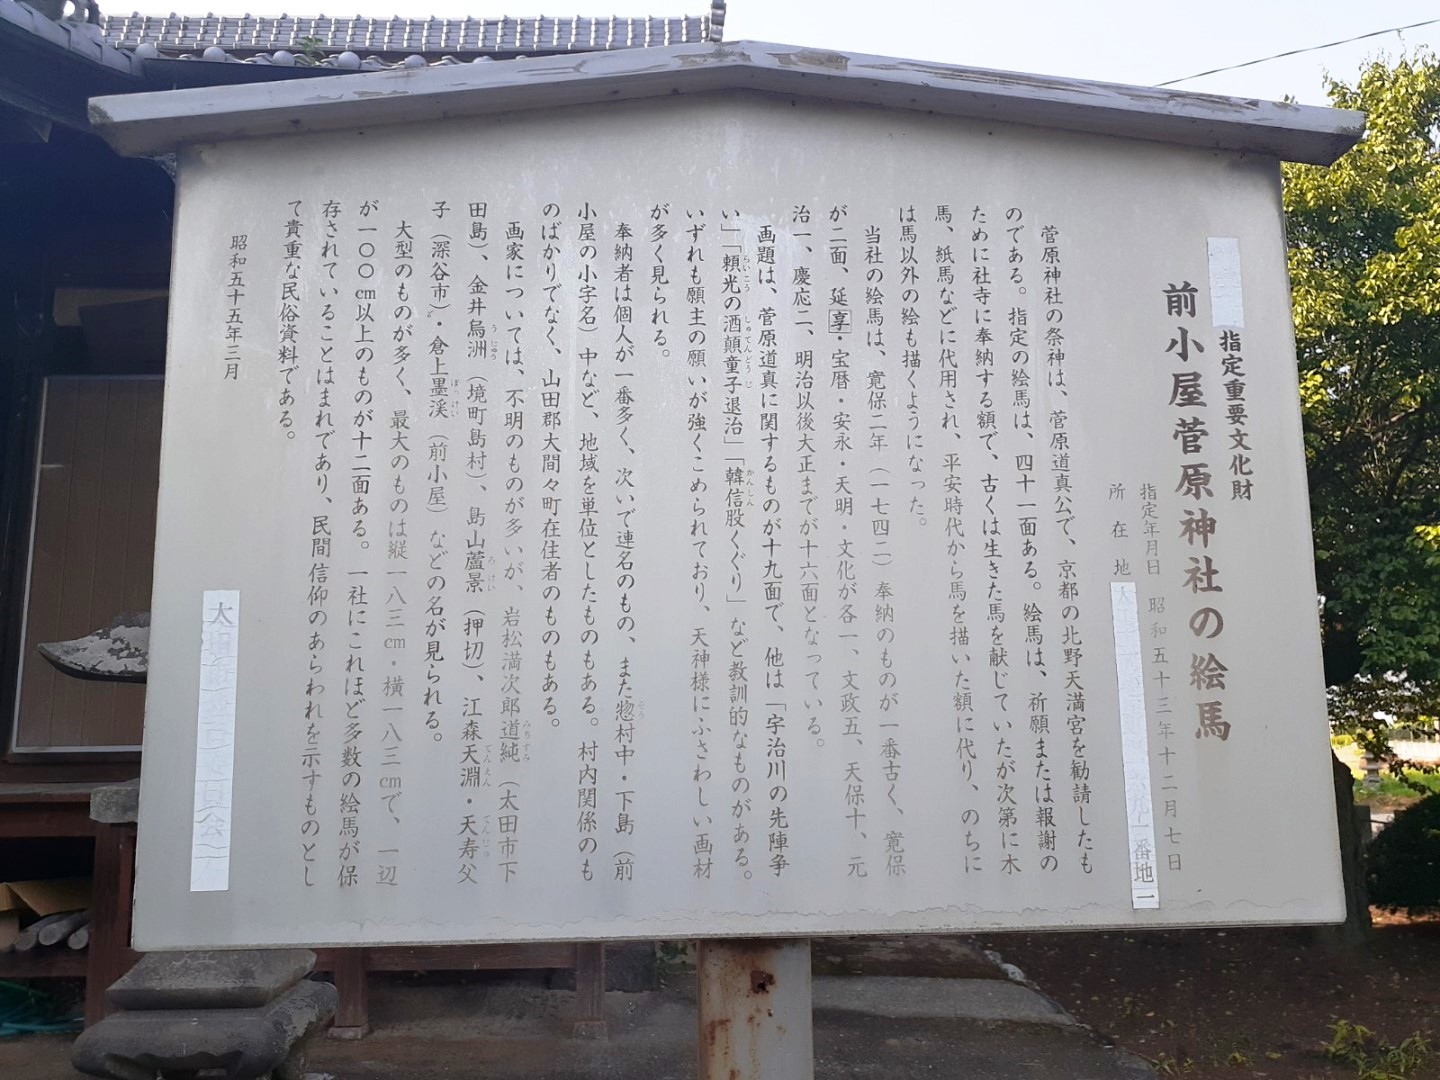 指定重要文化財
前小屋菅原神社の絵馬
指定年月日　昭和五十三年十二月七日
所在地
番地一
菅原神社の祭神は、菅原道真公で、京都の北野天満宮を勧請したも
のである。指定の絵馬は、四十一面ある。絵馬は、祈願または報謝の
ために社寺に奉納する額で、古くは生きた馬を献じていたが次第に木
馬、紙馬などに代用され、平安時代から馬を描いた額に代り、のちに
は馬以外の絵も描くようになった。
当社の絵馬は、寛保二年（一七四二）奉納のものが一番古く、寛保
が二面、延享・宝暦・安永・天明・文化が各一、文政五、天保十、元
治一、慶応二、明治以後大正までが十六面となっている。
画題は、菅原道真に関するものが十九面で、他は「宇治川の先陣争
い」「頼光の酒顛童子退治」「韓信股くぐり」など教訓的なものがある。
いずれも願主の願いが強くこめられており、天神様にふさわしい画材
が多く見られる。
奉納者は個人が一番多く、次いで連名のもの、また惣村中・下島（前
小屋の小字名）中など、地域を単位としたものもある。村内関係のも
のばかりでなく、山田郡大間々町在住者のものもある。
画家については、不明のものが多いが、岩松満次郎道純（太田市下
田島）、金井烏洲（境町島村）、島山蘆景（押切）、江森天淵・天寿父
子（深谷市）・倉上墨渓（前小屋）などの名が見られる。
大型のものが多く、最大のものは縦一八三cm・横一八三cmで、一辺
が一〇〇cm以上のものが十二面ある。一社にこれほど多数の絵馬が保
存されていることはまれであり、民間信仰のあらわれを示すものとし
て貴重な民俗資料である。
昭和五十五年三月